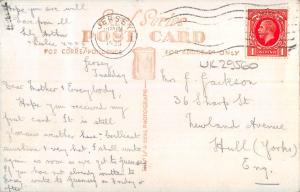 Hope you are all
well. Love from all
JERSEY
POST CARD
FOR CORRESPONDENCE
Jersey
Tuesday
Dear Mother & Everybody,
Hope you received my
first card. It is still
glorious weather here - brilliant
sunshine & very hot. I shall write
again as soon as we get to Guernsey
If you have not already written to
here write to Guernsey
UK29560
Mr G. Jackson
36 Sharp St.
Newland Avenue
Hull (Yorks)
Eng.